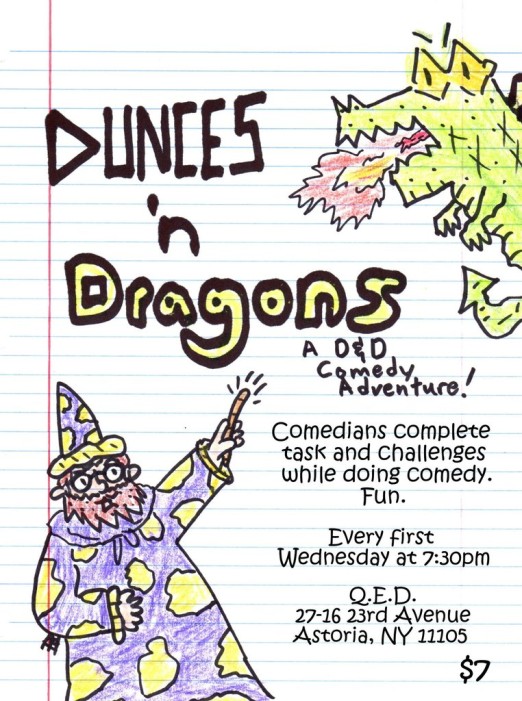 DUNCES
'n
Dragons
A D&D
Comedy
Adventure!
Comedians complete
task and challenges
while doing comedy.
Fun.
Every first
Wednesday at 7:30pm
Q.E.D.
27-16 23rd Avenue
Astoria, NY 11105
$7